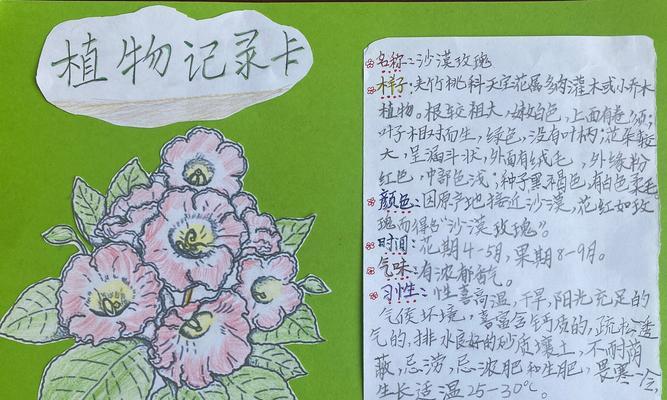 植物记录卡
名称:沙漠玫瑰
样子:夹竹桃科天宝花属多肉灌木或小乔木
植物。根较粗大,嫩白色,上面有卷须;
叶子相对而生,绿色,没有叶柄;花朵较
大,呈漏斗状,外面有绒毛,外缘粉
红色,中部色浅;种子黑褐色,有白色柔毛。
颜色:因原产地接近沙漠,花红如玫
瑰而得名“沙漠玫瑰”。
时间:花期4-5月,果期8-9月。
气味:有浓郁香气。
习性:性喜高温,干旱,阳光充足的
气候环境,喜富含钙质的,疏松透
气的,排水良好的砂质壤土,不耐荫
蔽,忌涝,忌浓肥和生肥,畏寒冷,
生长适温25-30℃。